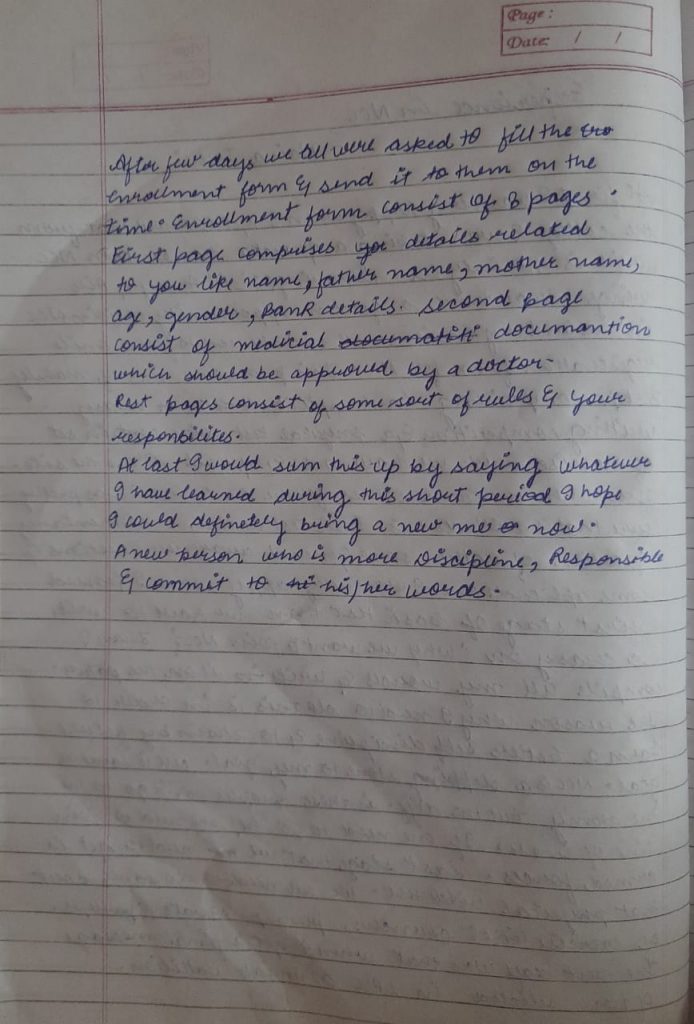 Page :
Date: / /
After few days we all were asked to fill the Ero
Enrollment form & send it to them on the
time. Enrollment form consist of 8 pages .
First page comprises you details related
to you like name, father name, mother name,
age, gender, Bank details. second page
consist of medicial documatiti documantion
which should be approved by a doctor-
Rest pages consist of some sort of rules & your
responsbilites.
At last I would sum this up by saying whatever
I have learned during this short period I hope
I could definetely bring a new me now.
A new person who is more Discipline, Responsible
& commit to his/her words.